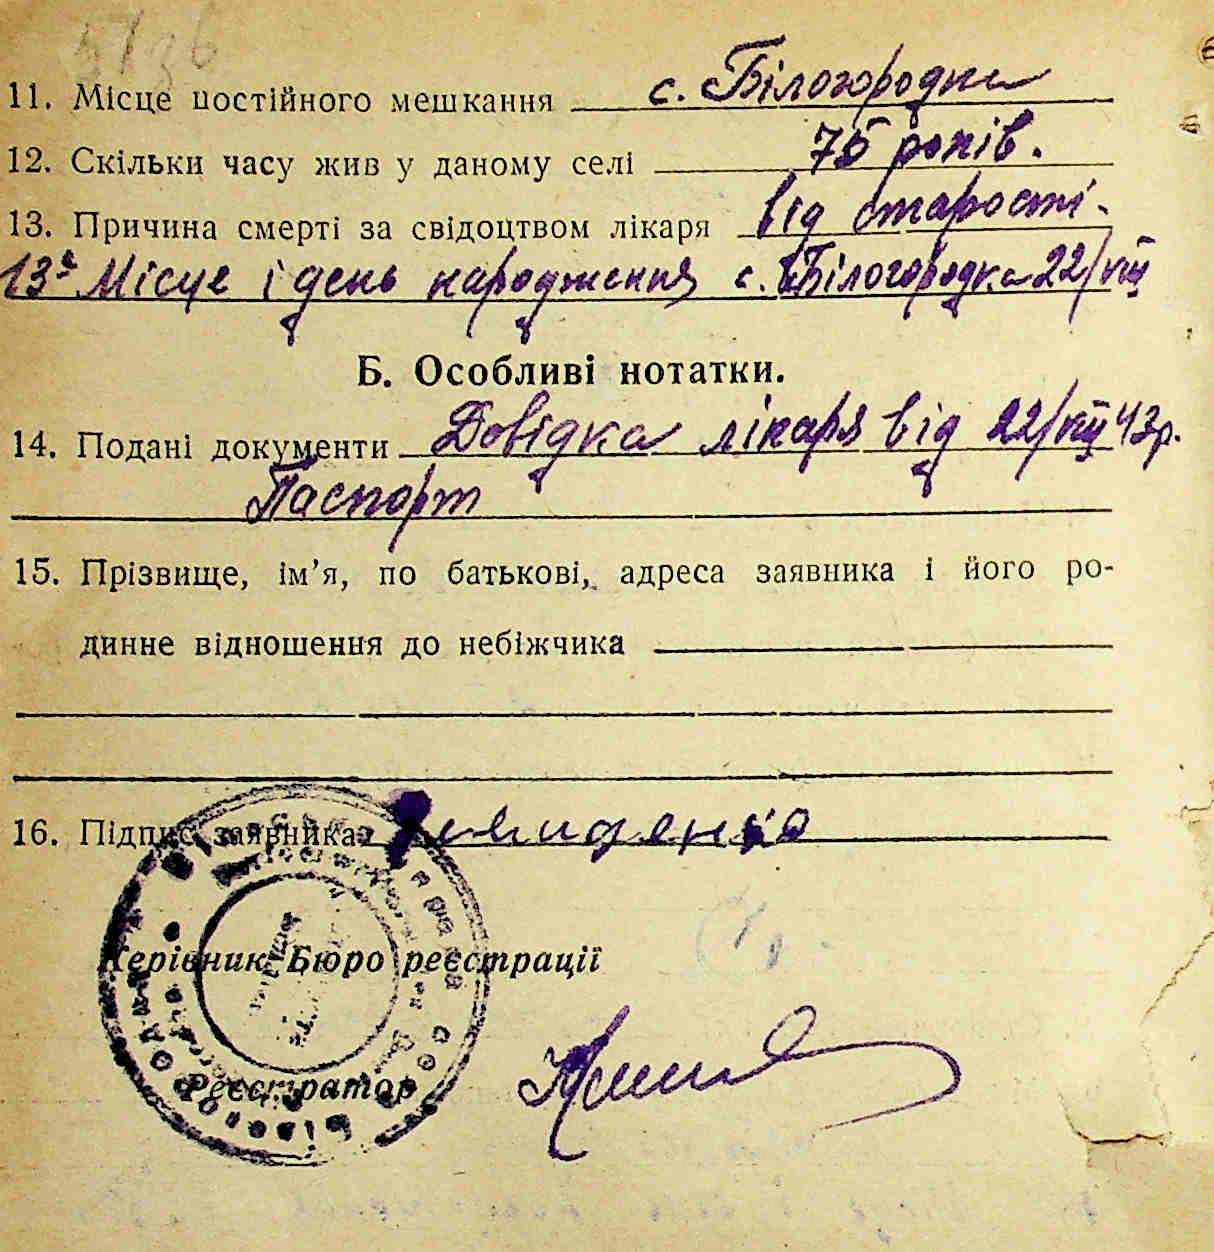 11. Місце постійного мешкання с. Білогородка
12. Скільки часу жив у даному селі 75 років.
13. Причина смерті за свідоцтвом лікаря від старости.
13а Місце і день народження с. Білогородка 22/VIII
Б. Особливі нотатки.
14. Подані документи Довідка лікаря від 22/VIII 43 р.
Паспорт
15. Прізвище, ім’я, по батькові, адреса заявника і його ро-
динне відношення до небіжчика
16. Підпис заявника
Керівник Бюро реєстрації
Реєстратор